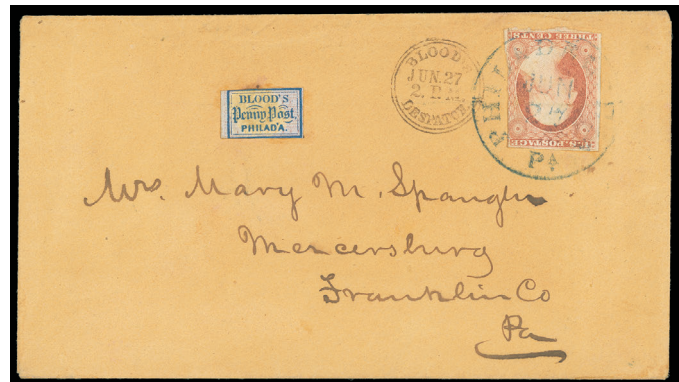 BLOOD'S
Penny Post,
PHILAD'A.
BLOOD'S
JUN.27
2. P M.
DESPATCH
THREE CENTS
U.S. POSTAGE
JUN
PA
Mrs. Mary M. Spangler
Mercersburg
Franklin Co
Pa